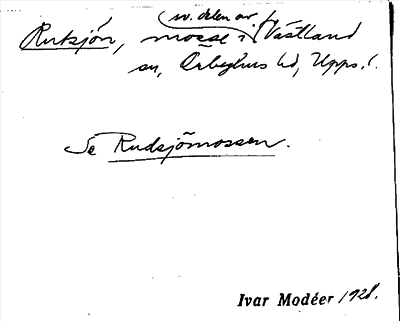 sv. delen av
Rutsjön, mosse i Västland
sn, Örbyhus hd, Upps. l.
Se Rudsjömossen.
Ivar Modéer 1928.